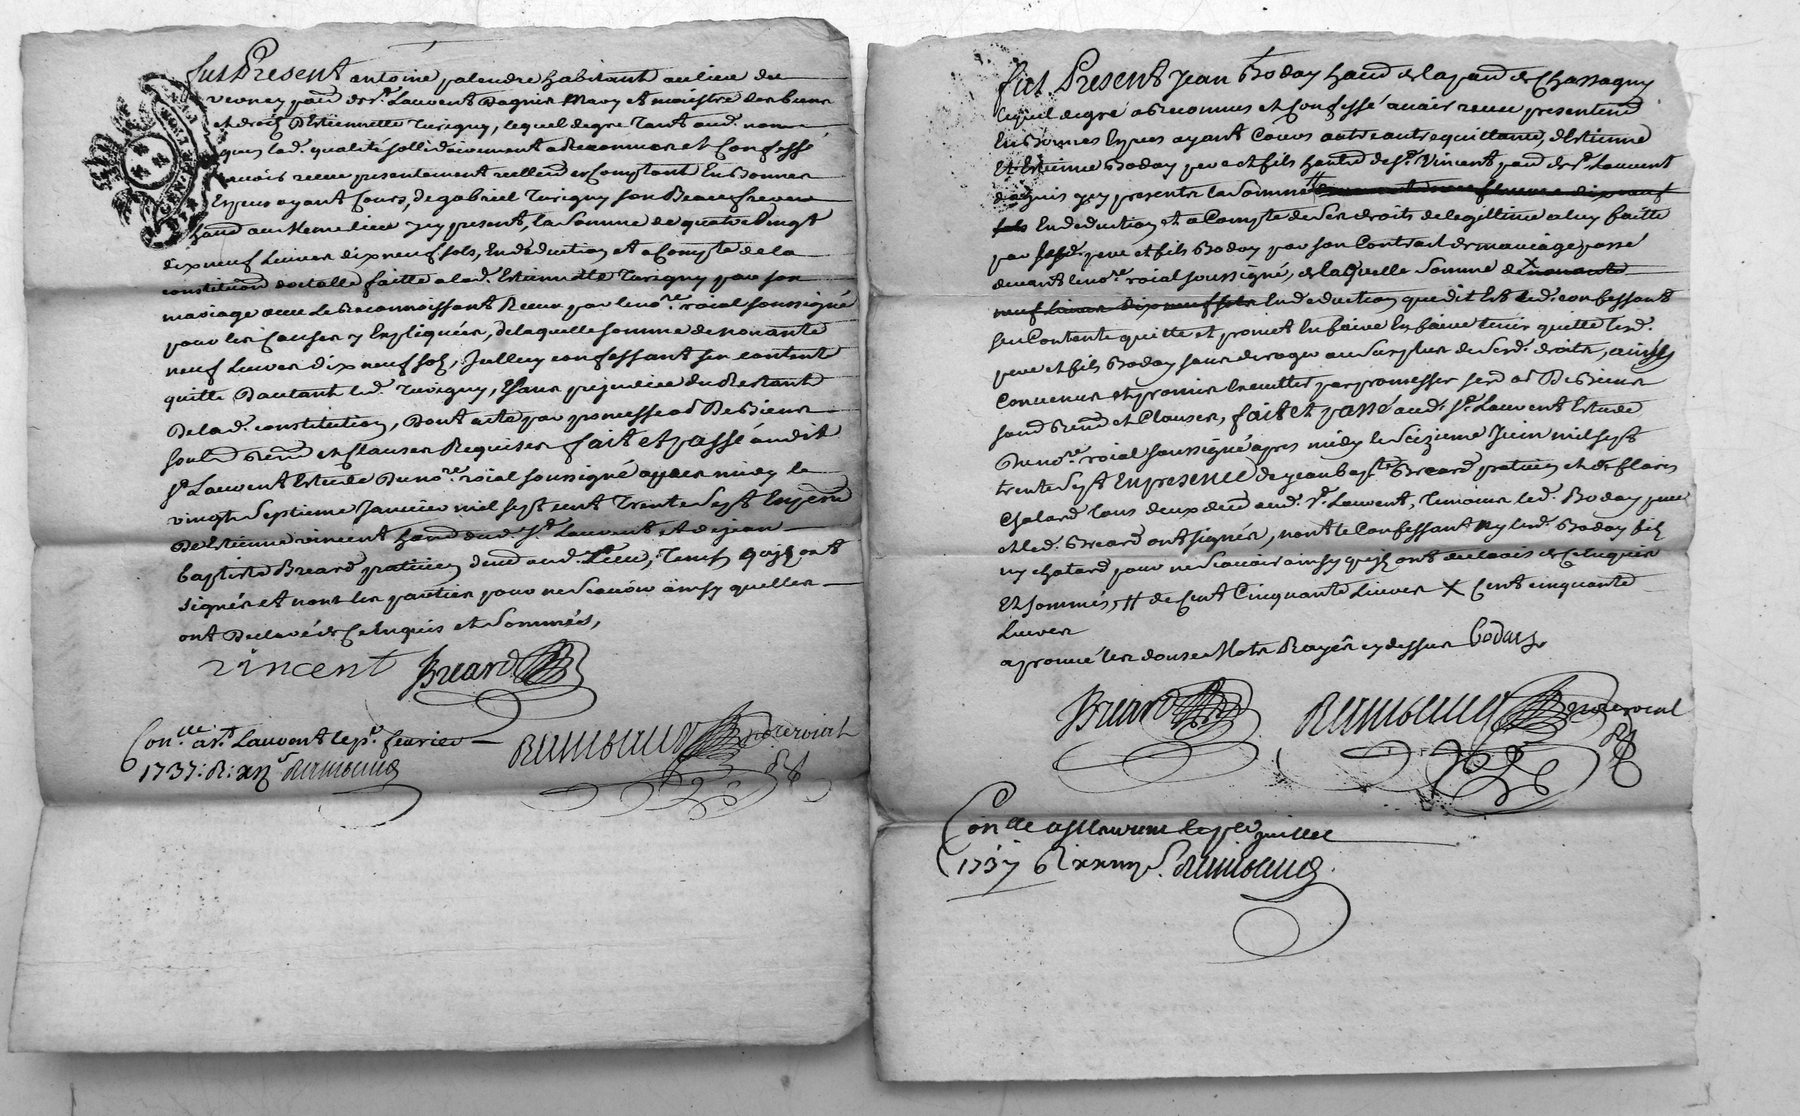 fut Present antoine palendre habitant au lieu du
verney parr. de St. Laurent Dagnin Mary et maistre des biens
et droits D'Estiennette Turigny, lequel de gre tant aud. nom
que lad. qualité sollidairement a Reconnu et Confessé
avoir receu presentement reellemt. et Comptant En Bonnes
Especes ayant Cours, de gabriel Turigny son Beaufrere
hand. au Meme lieu Icy present, la Somme de quatre Vingt
dix neuf Livres dix neuf sols, En deduction et a Compte de la
constitution dotalle faitte a lad. Estiennette Turigny par son
mariage avec le Reconnoissant Receu par le nore. roial soussigné
pour les Causes y Expliquées, de laquelle somme de nonante
neuf Livres dix neuf sols, Icelluy confessant sen contente
quitte D'autant led. Turigny, Sans prejudice du Restant
De lad. constitution, Dont acte par promesse obl. De Biens
soub. Renon. et Clauses Requises fait et passé audit
St. Laurent Estude Du nore. roial soussigné apres midy le
vingt Septieme Janvier mil sept cent Trente Sept En presence
De Estienne vincent hand. dud. St. Laurent et de jean
baptiste Breard praticien demt. aud. Lieu, Tem. qui ont
signés et non les parties pour ne Scavoir ainsy quelles
ont Declaré de Ce Enquis et Sommés,
vincent Breard
Conllé a St. Laurent le pr. fevrier
1737: R: xij s Rimbaud
Rimbaud nore. roial
fut Present Jean Boday hand. de la par. de Chassagny
lequel de gre a Reconnus et Confessé avoir receu presentemt.
En Bonnes Especes ayant Cours autreants equittance, d'Estienne
Et Estienne Boday pere et fils hands. de St. Vincent parr. de St. Laurent
dagnis Icy presents la Somme # neuf livres dix neuf
sols En deduction et a Compte de Ses droits de legittime a luy faitte
par lesd. pere et fils Boday par son Contrait de mariage passé
devant le nore. roial soussigné, de laquelle Somme de X nonante
neuf Livres dix neuf sols En deduction que dit Est led. confessant
sen Contente quitte et promet En faire En faire tenir quitte lesd.
pere et fils Boday sans deroger au Surplus de Sesd. droits, ainsy
Convenus et promis Executter par promesses serd. obl. De Biens
soub. Renon. et Clauses, fait et passé aud. St. Laurent Estude
Du nore. roial soussigné apres midy le Seizieme Juin mil sept
trente Sept En presence de jean bapte. Breard praticien et de
Chatard tous deux demt. aud. St. Laurent, Temoins led. Boday pere
et led. Breard ont signés, non le Confessant Ny led. Boday fils
ny chatard pour ne Scavoir ainsy quils ont declaré de Ce Enquis
Et Sommés, # de Cent Cinquante Livres X Cent cinquante
Livres
aprouvé les douse Mots Rayés cy dessus Boday
Breard Rimbaud nore. roial
Conllé a St Laurent le per juillet
1737 R xxiiij s. Rimbaud